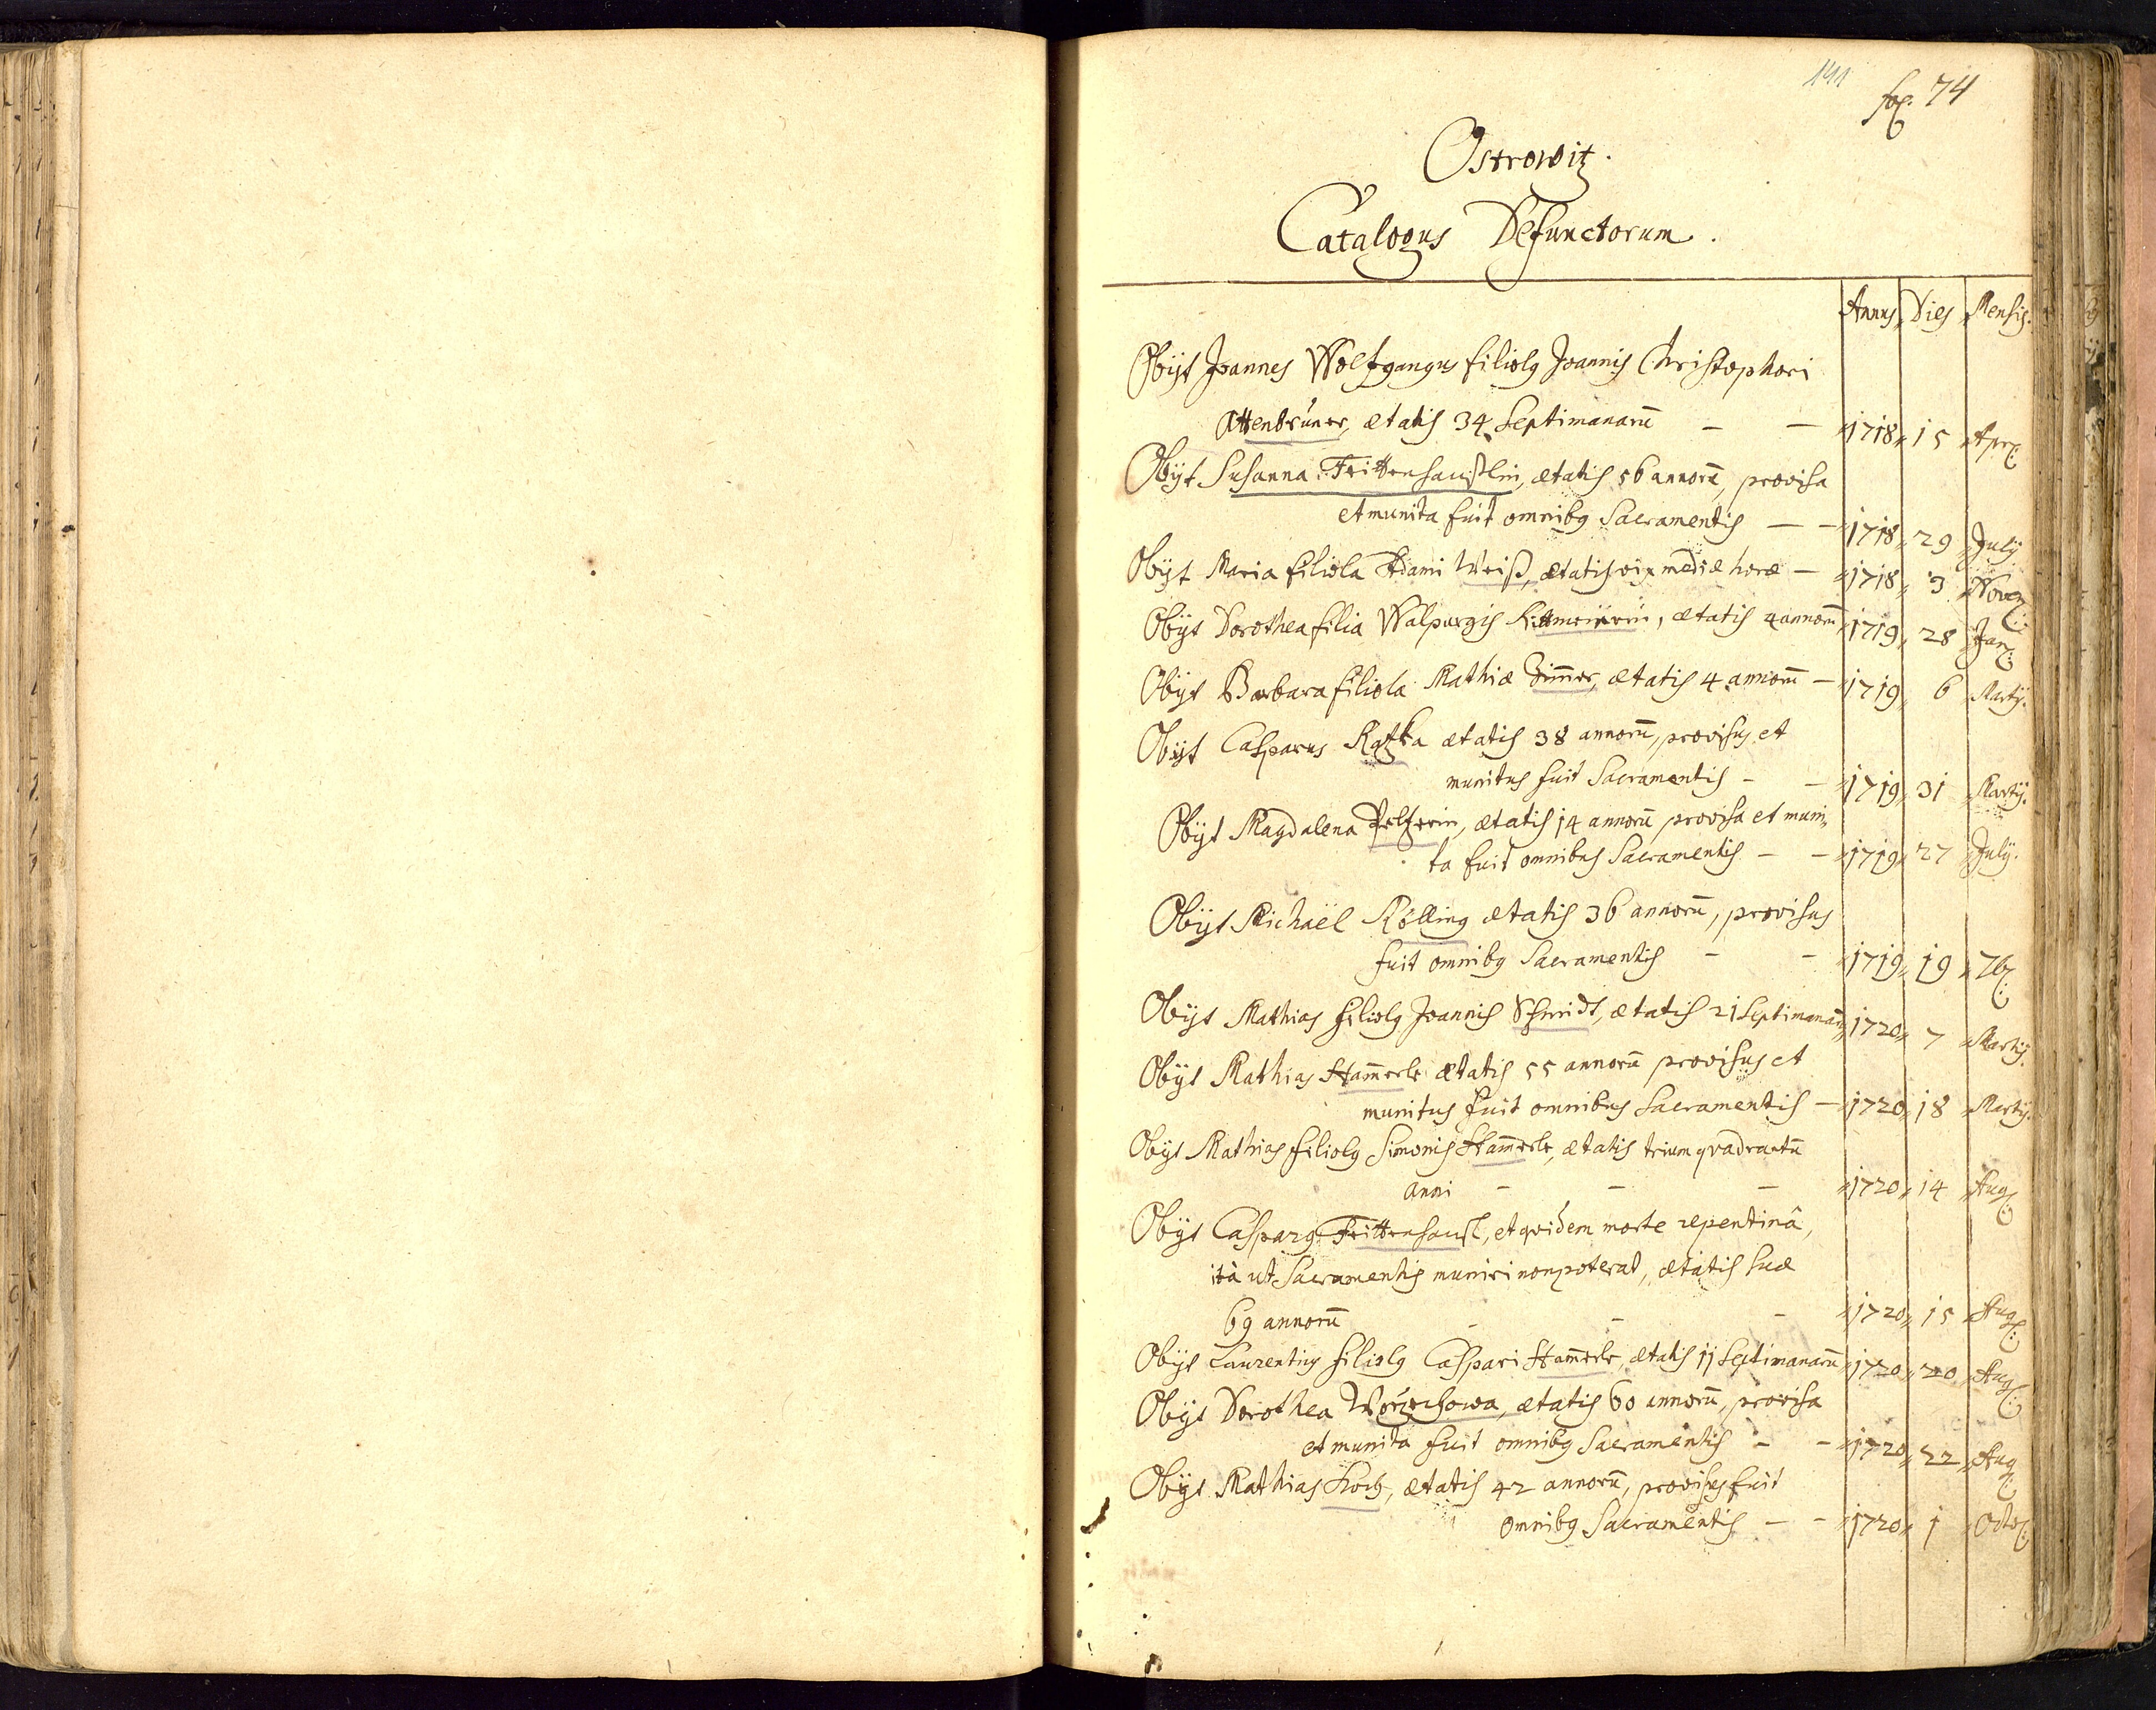 191
fol: 74
Ostrowitz.
Catalogus Defunctorum.
Annus Dies Mensis.
Obijt Joannes Wolfgangus filiolg Joannis Christophori
Attenbruner, ætatis 34 Septimanarū — — 1718 15 Apr:
Obijt Susanna Frittenhaußlin, ætatis 56 annorū, provisa
et munita fuit omnibg Sacramentis — — 1718 29 July
Obijt Maria filiola Adami Weiß, ætatis vix mediæ horæ — 1718 3 Nov:
Obijt Dorothea filia Walpurgis, ætatis 4 annorū 1719 28 Jan:
Obijt Barbara filiola Mathiæ Zim̄er, ætatis 4 annorū — 1719 6 Martij.
Obijt Casparus Ratka ætatis 38 annorū, provisus et
munitus fuit Sacramentis - — 1719 31 Martij.
Obijt Magdalena Pelzerin, ætatis 14 annorū provisa et muni,
ta fuit omnibus Sacramentis — — 1719 27 July.
Obijt Michaël Rölling ætatis 36 annorū, provisus
fuit omnibg Sacramentis - - 1719 19 7b:
Obijt Mathias filiolg Joannis Schmidt, ætatis 21 Septimanarū 1720 7 Martij.
Obijt Mathias Ham̄erle ætatis 55 annorū provisus et
munitus fuit omnibus Sacramentis — 1720 18 Martij.
Obijt Mathias filiolg Simonis Ham̄erle, ætatis trium qvadrantū
anni - — — 1720 14 Aug:
Obijt Casparg Frittenhaußl, et qvidem morte repentinâ,
ità ut Sacramentis muniri non poterat, ætatis suæ
69 annorū - - - 1720 15 Aug:
Obijt Laurentius filiolg Caspari Ham̄erle, ætatis 11 Septimanarū 1720 20 Aug:
Obijt Dorothea Worzechowa, ætatis 60 annorū, provisa
et munita fuit omnibg Sacramentis - — 1720 22 Aug:
Obijt Mathias Koch, ætatis 42 annorū, provisus fuit
omnibg Sacramentis — - 1720 1 Octo: